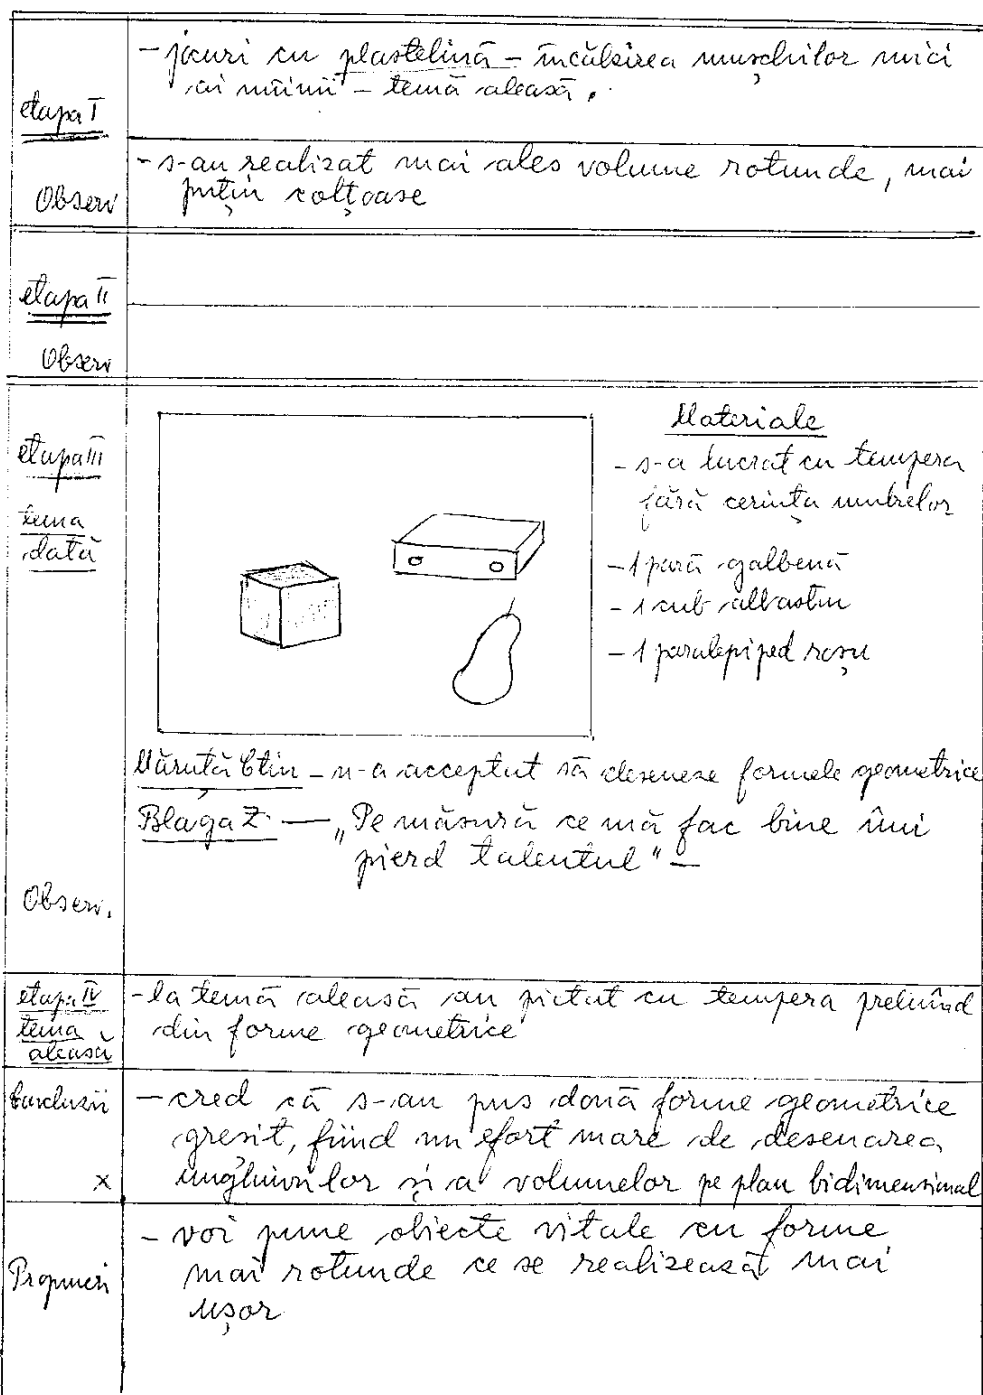 - jocuri cu plastelină – încălzirea muschilor mici
ai mîinii – temă aleasă.
etapa I
- s-au realizat mai ales volume rotunde, mai
puțin colțoase
Observ
etapa II
Observ
etapa III
tema
dată
Materiale
- s-a lucrat cu tempera
fără cerința umbrelor
- 1 pară galbenă
- 1 cub albastru
- 1 paralepiped roșu
Măruță Ctin – n-a acceptat să deseneze formele geometrice
Blaga Z. — „Pe măsură ce mă fac bine îmi
pierd talentul" –
Observ.
etapa IV
tema
aleasă
- la temă aleasă au pictat cu tempera preluînd
din forme geometrice
Concluzii
x
– cred că s-au pus două forme geometrice
greșit, fiind un efort mare de desenarea
unghiurilor și a volumelor pe plan bidimensional
Propuneri
- voi pune obiecte vitale cu forme
mai rotunde ce se realizează mai
ușor